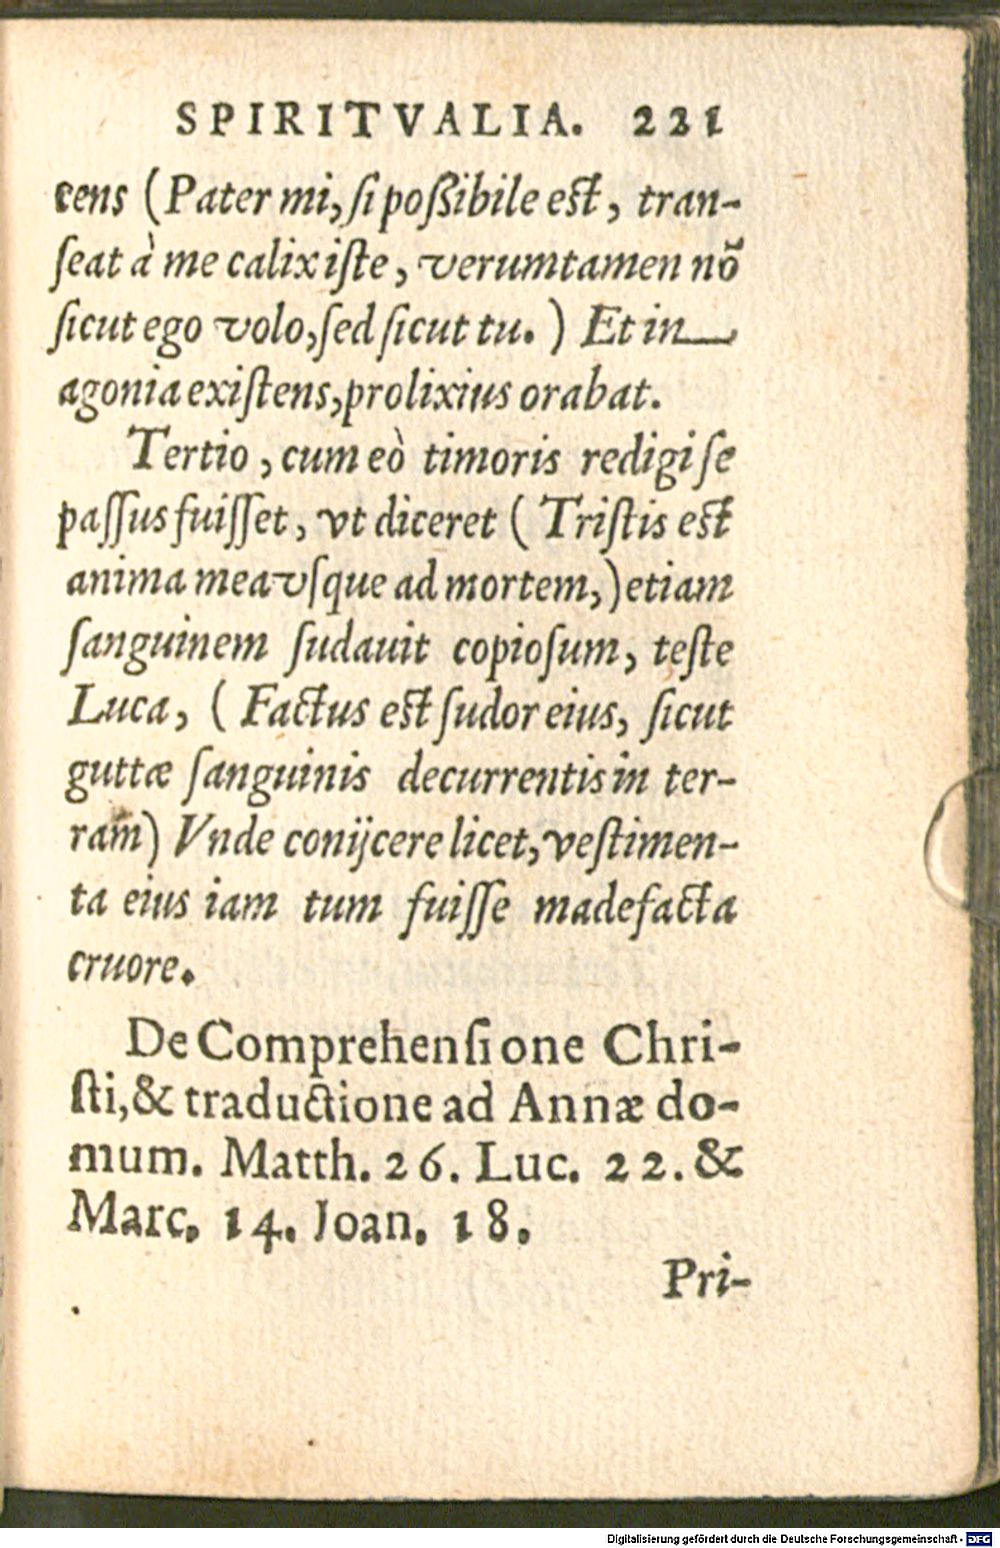 SPIRITVALIA. 221
cens (Pater mi, ſi poßibile eſt, tran-
ſeat à me calix iſte, verumtamen nõ
ſicut ego volo, ſed ſicut tu.) Et in
agonia exiſtens, prolixius orabat.
Tertio, cum eò timoris redigi ſe
paſſus fuiſſet, vt diceret (Triſtis eſt
anima mea vſque ad mortem,) etiam
ſanguinem ſudauit copioſum, teſte
Luca, (Factus eſt ſudor eius, ſicut
guttæ ſanguinis decurrentis in ter-
ram) Vnde conijcere licet, veſtimen-
ta eius iam tum fuiſſe madefacta
cruore.
De Comprehenſione Chri-
ſti, & traductione ad Annæ do-
mum. Matth. 26. Luc. 22. &
Marc. 14. Joan. 18.
Pri-
Digitalisierung gefördert durch die Deutsche Forschungsgemeinschaft - DFG